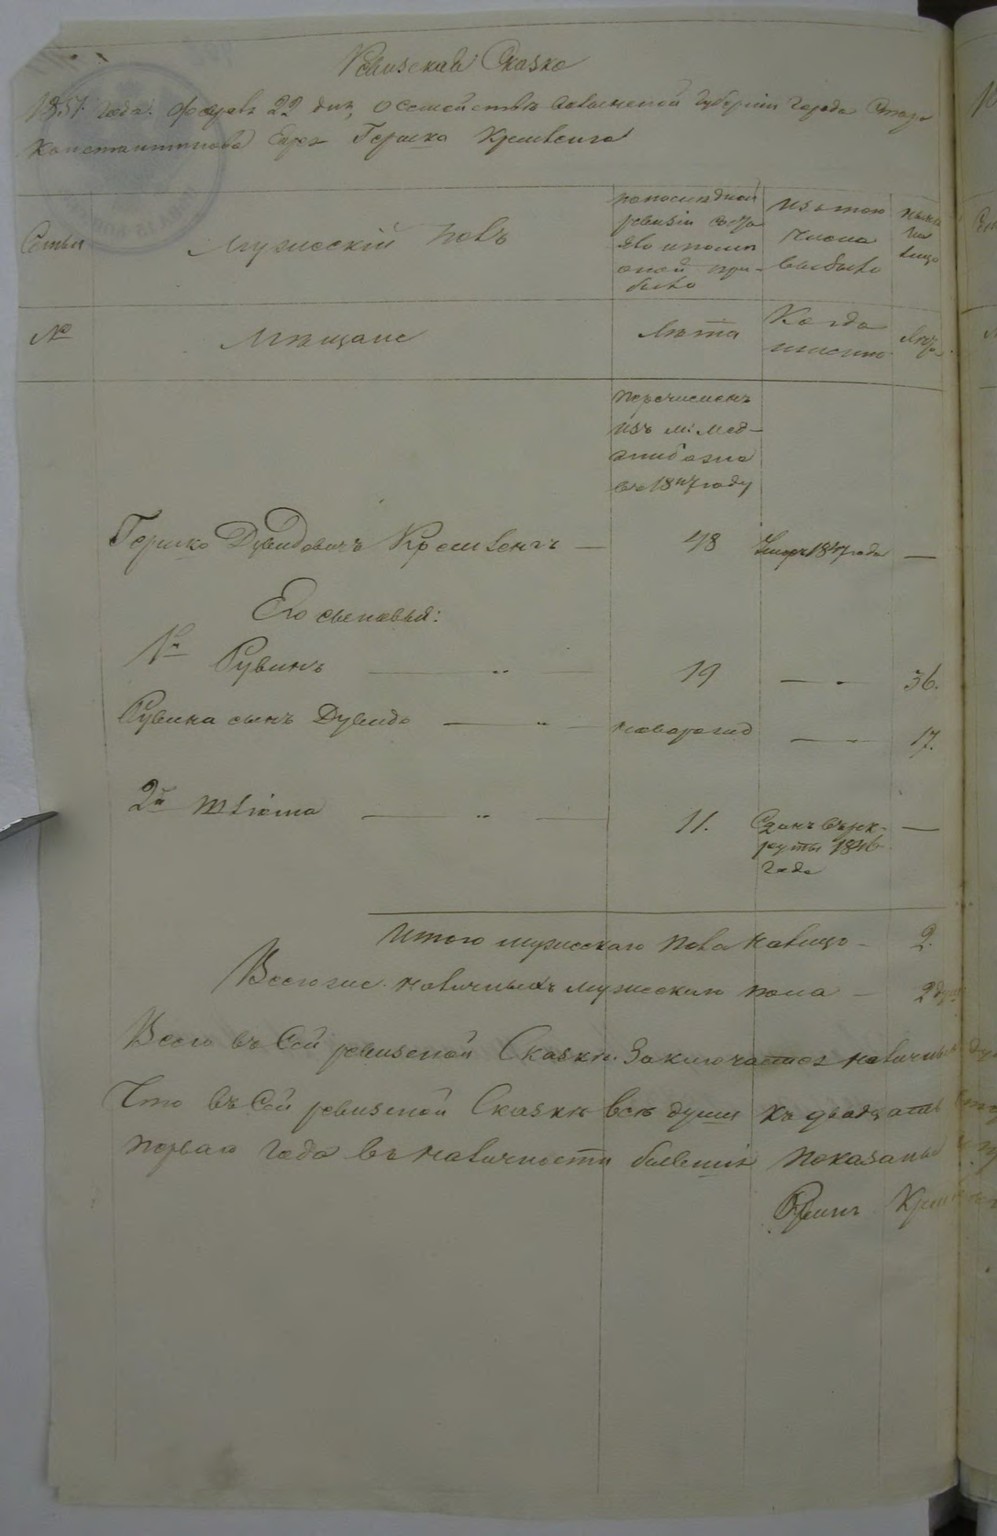 Ревизская Сказка
1851 года. Февраля 22 дня, о семействе Волынской Губернии города Старо
Константинова Еврея Гершка Кремвенга
Семья
Мужескій полъ
по последней ревизіи состояло и после оной прибыло
Изъ того числа выбыло
ныне на лицо
№
Мещане
Лѣта
Когда именно
Лета
перечисленъ
изъ м: Мед-
жибожа
въ 1847 году
Гершко Дувидовичъ Кремвенгъ — 48 Умеръ 1847 года —
Его сыновья:
1й Рувинъ — „ — 19 — „ — 36.
Рувина сынъ Дувидъ — „ — новорожд — „ — 17.
2й — „ — 11. Сданъ въ рек-
руты 1846
года —
Итого мужескаго пола налицо — 2.
Всего же наличныхъ мужеска пола — 2 душ
Всего въ Сей ревизской Сказке заключается наличныхъ
Что въ Сей ревизской Сказке все души къ двадцать
перваго года въ наличности бывшія показаны
Рувинъ